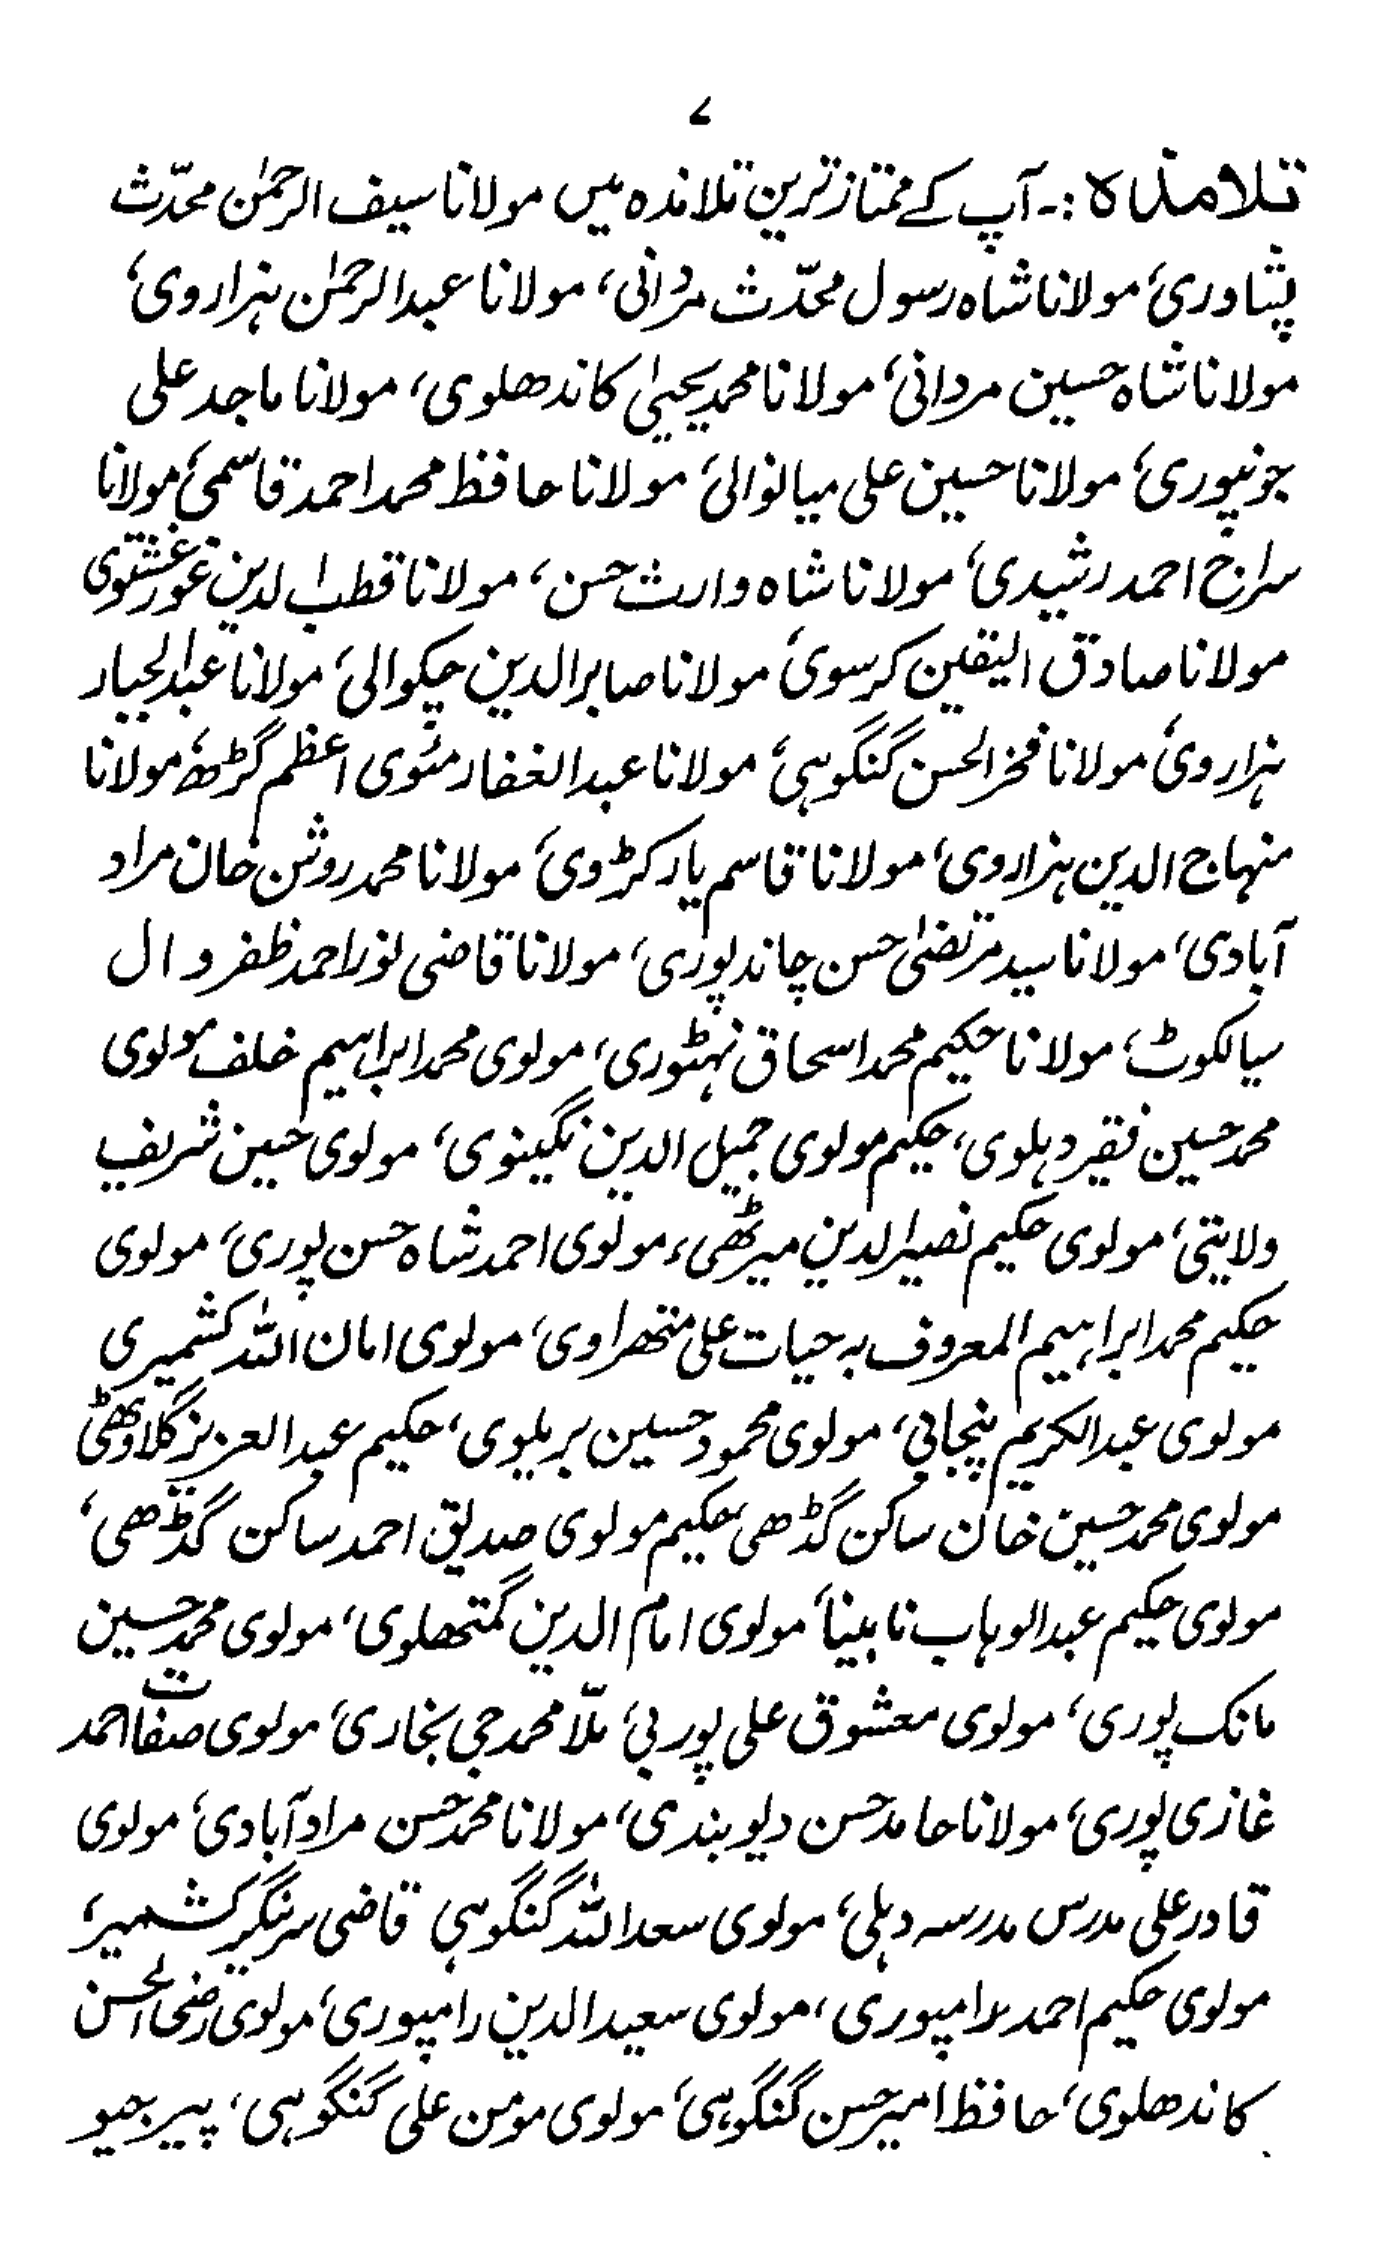 ۷
تلامذہ :۔ آپ کے ممتاز ترین تلامذہ میں مولانا سیف الرحمٰن محدّث
پشاوری، مولانا شاہ رسول محدّث مردانی، مولانا عبدالرحمٰن ہزاروی،
مولانا شاہ حسین مردانی، مولانا محمد یحییٰ کاندھلوی، مولانا ماجد علی
جونپوری، مولانا حسین علی میانوالی، مولانا حافظ محمد احمد قاسمی، مولانا
سراج احمد رشیدی، مولانا شاہ وارث حسن، مولانا قطب الدین غورغشتوی
مولانا صادق الیقین کرسوی، مولانا صابر الدین چکوالی، مولانا عبدالجبار
ہزاروی، مولانا فخر الحسن گنگوہی، مولانا عبدالغفار مئوی اعظم گڑھ، مولانا
منہاج الدین ہزاروی، مولانا قاسم یار کڑوی، مولانا محمد روشن خان مراد
آبادی، مولانا سید مرتضیٰ حسن چاندپوری، مولانا قاضی نور احمد ظفروال
سیالکوٹ، مولانا حکیم محمد اسحاق نہٹوری، مولوی محمد ابراہیم خلف مولوی
محمد حسین فقیر دہلوی، حکیم مولوی جمیل الدین نگینوی، مولوی حسین شریف
ولایتی، مولوی حکیم نصیر الدین میرٹھی، مولوی احمد شاہ حسن پوری، مولوی
حکیم محمد ابراہیم المعروف بہ حیات علی متھراوی، مولوی امان اللہ کشمیری
مولوی عبدالکریم پنجابی، مولوی محمود حسین بریلوی، حکیم عبدالعزیز گلاوٹھی
مولوی محمد حسین خان ساکن گڈھی، حکیم مولوی صدیق احمد ساکن گڈھی،
مولوی حکیم عبدالوہاب نابینا، مولوی امام الدین گمتھلوی، مولوی محمد حسین
مانک پوری، مولوی معشوق علی پوربی، ملّا محمد جی بخاری، مولوی صفات احمد
غازی پوری، مولانا حامد حسن دیوبندی، مولانا محمد حسن مراد آبادی، مولوی
قادر علی مدرس مدرسہ دہلی، مولوی سعد اللہ گنگوہی قاضی سرنگیر کشمیر،
مولوی حکیم احمد رامپوری، مولوی سعید الدین رامپوری، مولوی رضی الحسن
کاندھلوی، حافظ امیر حسن گنگوہی، مولوی مومن علی گنگوہی، پیر جیو